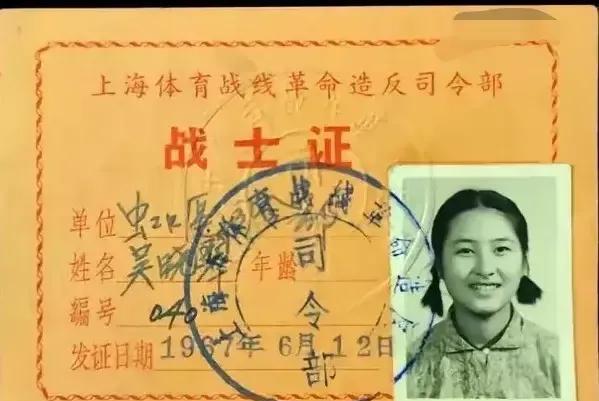 上海体育战线革命造反司令部
战士证
单位 虹口
姓名 吴晓 年龄
编号 040
发证日期 1967年6月12日
司令部